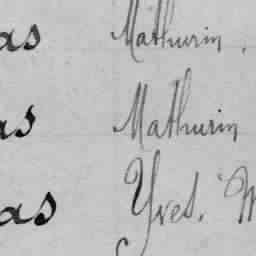 as Mathurin,
as Mathurin
as Yves, M